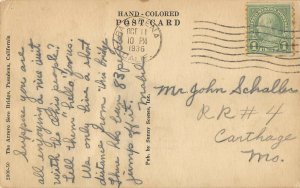 HAND-COLORED
POST CARD
OCT 11
10 PM
1936
Suppose you are
all enjoying a nice visit
with the Ohio people?
Tell them "hello" for us.
We only live a short
distance from this bridge
There has been 83 people
jump off it.
Mr John Schaller
R R # 4
Carthage
Mo.
The Arroyo Seco Bridge, Pasadena, California
Pub. by Sunny Scenes, Inc.